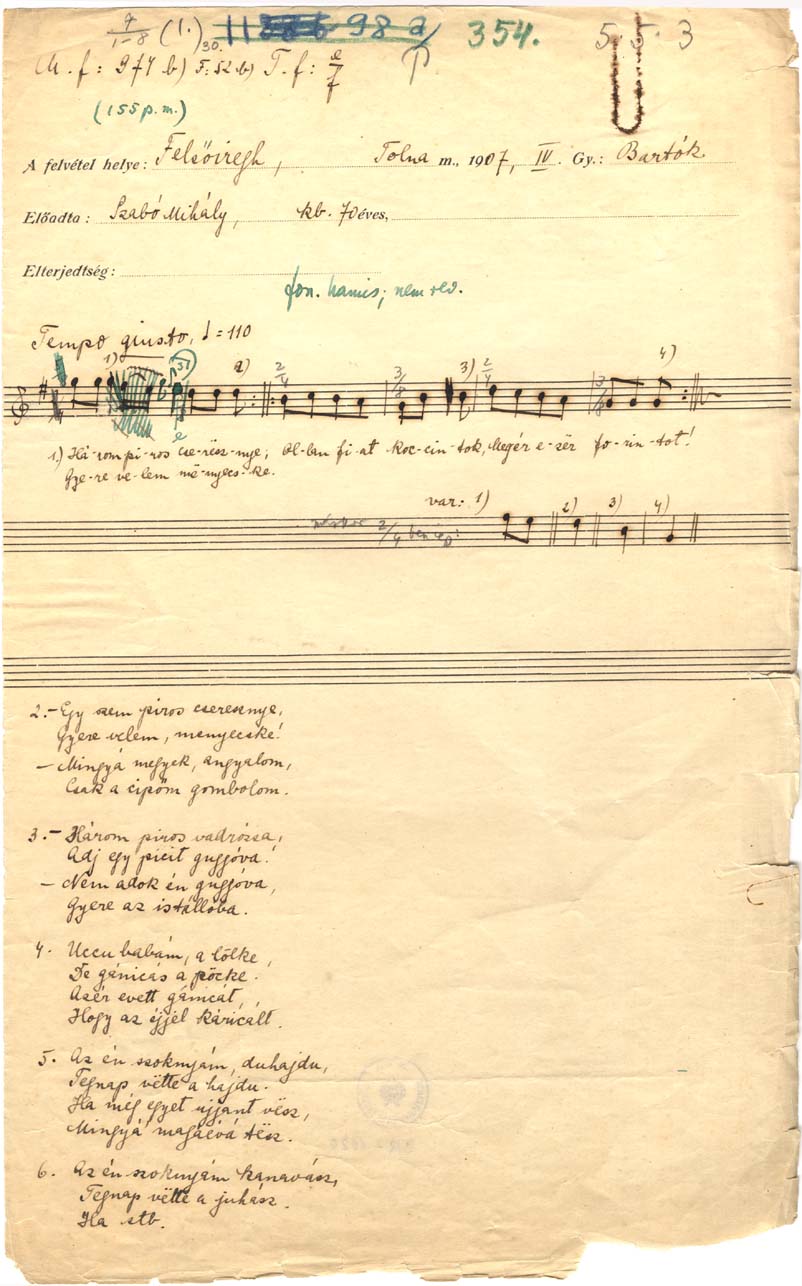 9/1-8 (1.)30. 98a 354. 5 5 3
M. f: 974 b) F: 52 b) T. f:
(155 p. m.)
A felvétel helye: Felsőiregh, Tolna m., 1907, IV. Gy.: Bartók
Előadta: Szabó Mihály, kb. 70 éves,
Elterjedtség:
fon. hamis; nem rev.
Tempo giusto, ♩ = 110
1) 2) 2/4 3/8 3) 2/4 3/8 4)
1.) Há-rom pi-ros cse-rësz-nye; Ol-lan fi-at koc-cin-tok, Megér e-zër fo-rin-tot!
Gye-re ve-lem më-nyecs-ke.
var: 1) 2) 3) 4)
2/4
2.- Egy szem piros cseresnye,
Gyere velem, menyecske!
- Mingyá megyek, angyalom,
Csak a cipőm gombolom.
3.- Három piros vadrózsa,
Adj egy picit guggóva!
- Nem adok én guggóva,
Gyere az istállóba.
4. Uccu babám, a tölke,
De gánicás a pöcke.
Azér evett gánicát,
Hogy az éjjel káricált.
5. Az én szoknyám, duhajdu,
Tegnap vëtte a hajdu.
Ha még egyet ujjant vësz,
Mingyá magáévá tësz.
6. Az én szoknyám kanavász,
Tegnap vëtte a juhász.
Ha stb.